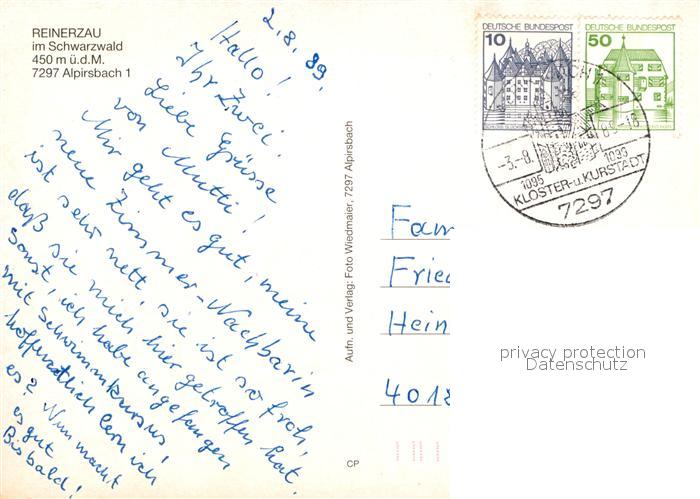 REINERZAU
im Schwarzwald
450 m ü.d.M.
7297 Alpirsbach 1
2.8.89.
Hallo!
Ihr Zwei!
Liebe Grüsse
von Mutti!
Mir geht es gut, meine
neue Zimmer-Nachbarin
ist sehr nett, sie ist so froh,
daß sie mich hier getroffen hat.
Sonst, ich habe angefangen
mit Schwimmkursus,
hoffentlich lern ich
es? Nun macht
es gut
Bisbald!
Aufn. und Verlag: Foto Wiedmaier, 7297 Alpirsbach
CP
DEUTSCHE BUNDESPOST
10
DEUTSCHE BUNDESPOST
50
-3.-8.
1095
KLOSTER-u.KURSTADT
7297
Fam
Fried
Hein
4018
privacy protection
Datenschutz